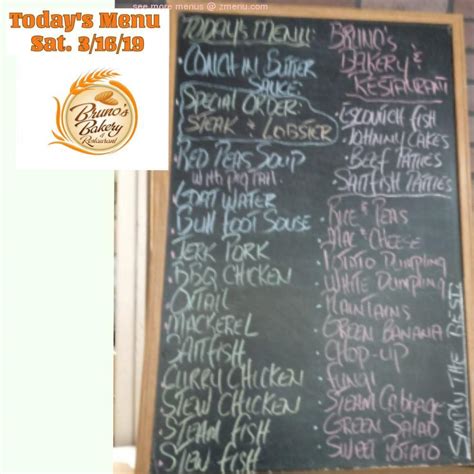 see more menus @ zmenu.com
Today's Menu
Sat. 3/16/19
Bruno's
Bakery &
Restaurant
TODAY'S MENU:
CONCH IN BUTTER
SAUCE
SPECIAL ORDER:
STEAK & LOBSTER
RED PEAS SOUP
WITH PIG TAIL
GOAT WATER
BULL FOOT SOUSE
JERK PORK
BBQ CHICKEN
OXTAIL
MACKEREL
SALTFISH
CURRY CHICKEN
STEW CHICKEN
STEAM FISH
STEW FISH
BRUNO'S
BAKERY &
RESTAURANT
ESCOVITCH FISH
JOHNNY CAKES
BEEF PATTIES
SALTFISH PATTIES
RICE & PEAS
MAC & CHEESE
POTATO DUMPLING
WHITE DUMPLING
PLANTAINS
GREEN BANANA
CHOP-UP
FUNGI
STEAM CABBAGE
GREEN SALAD
SWEET POTATO
SIMPLY THE BEST!